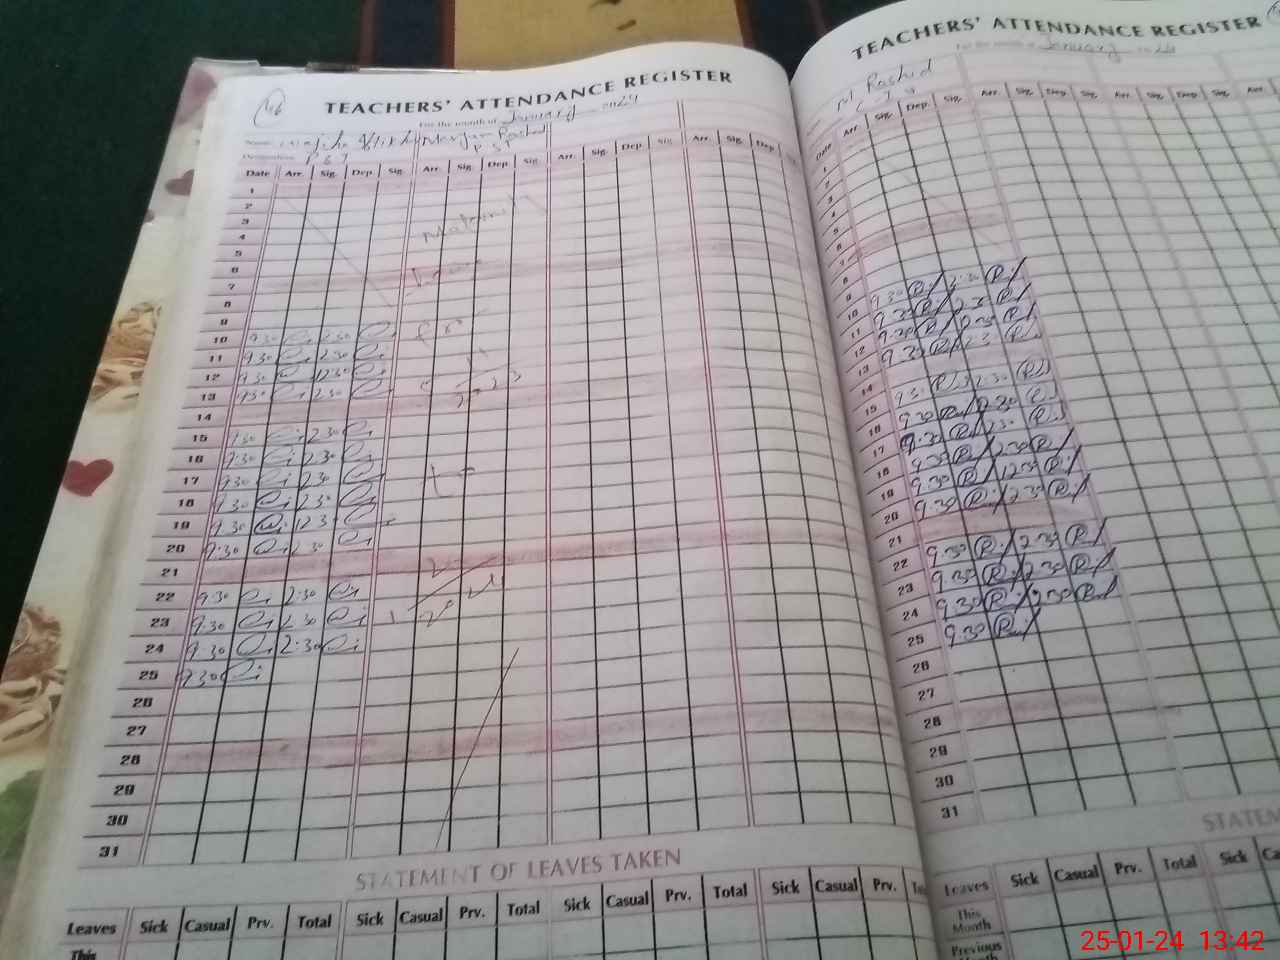 46
TEACHERS' ATTENDANCE REGISTER
For the month of January 2024
Name Maryam Rashid
Designation PST PST
Date Arr. Sig. Dep. Sig. Arr. Sig. Dep. Sig. Arr. Sig. Dep. Sig. Arr. Sig. Dep. Sig.
1
2
3
4 Maternity
5
6
7 Leave
8
9
10 9:30 2:30 for
11 9:30 2:30
12 9:30 12:30
13 9:30 2:30
14
15 9:30 2:30
16 9:30 2:30
17 9:30 2:30 to
18 9:30 2:30
19 9:30 12:3
20 9:30 2:30
21
22 9:30 2:30
23 9:30 2:30
24 9:30 2:30
25 9:30
26
27
28
29
30
31
STATEMENT OF LEAVES TAKEN
Leaves Sick Casual Prv. Total Sick Casual Prv. Total Sick Casual Prv. Total Sick Casual Prv.
This
TEACHERS' ATTENDANCE REGISTER
For the month of January 2024
M Rashid
Date Arr. Sig. Dep. Sig. Arr. Sig. Dep. Sig. Arr. Sig. Dep. Sig. Arr.
1
2
3
4
5
6
7
8
9 9:30 R 2:30 R
10 9:30 R 2:30 R
11 9:30 R 2:30 R
12 9:30 R 2:30 R
13
14 9:30 R 2:30 R
15 9:30 R 2:30 R
16 9:30 R 2:30 R
17 9:30 R 2:30 R
18 9:30 R 12:30 R
19 9:30 R 2:30 R
20
21
22 9:30 R 2:30 R
23 9:30 R 2:30 R
24 9:30 R 2:30 R
25 9:30 R
26
27
28
29
30
31
STATEM
Leaves Sick Casual Prv. Total Sick
This Month
Previous Month
25-01-24 13:42